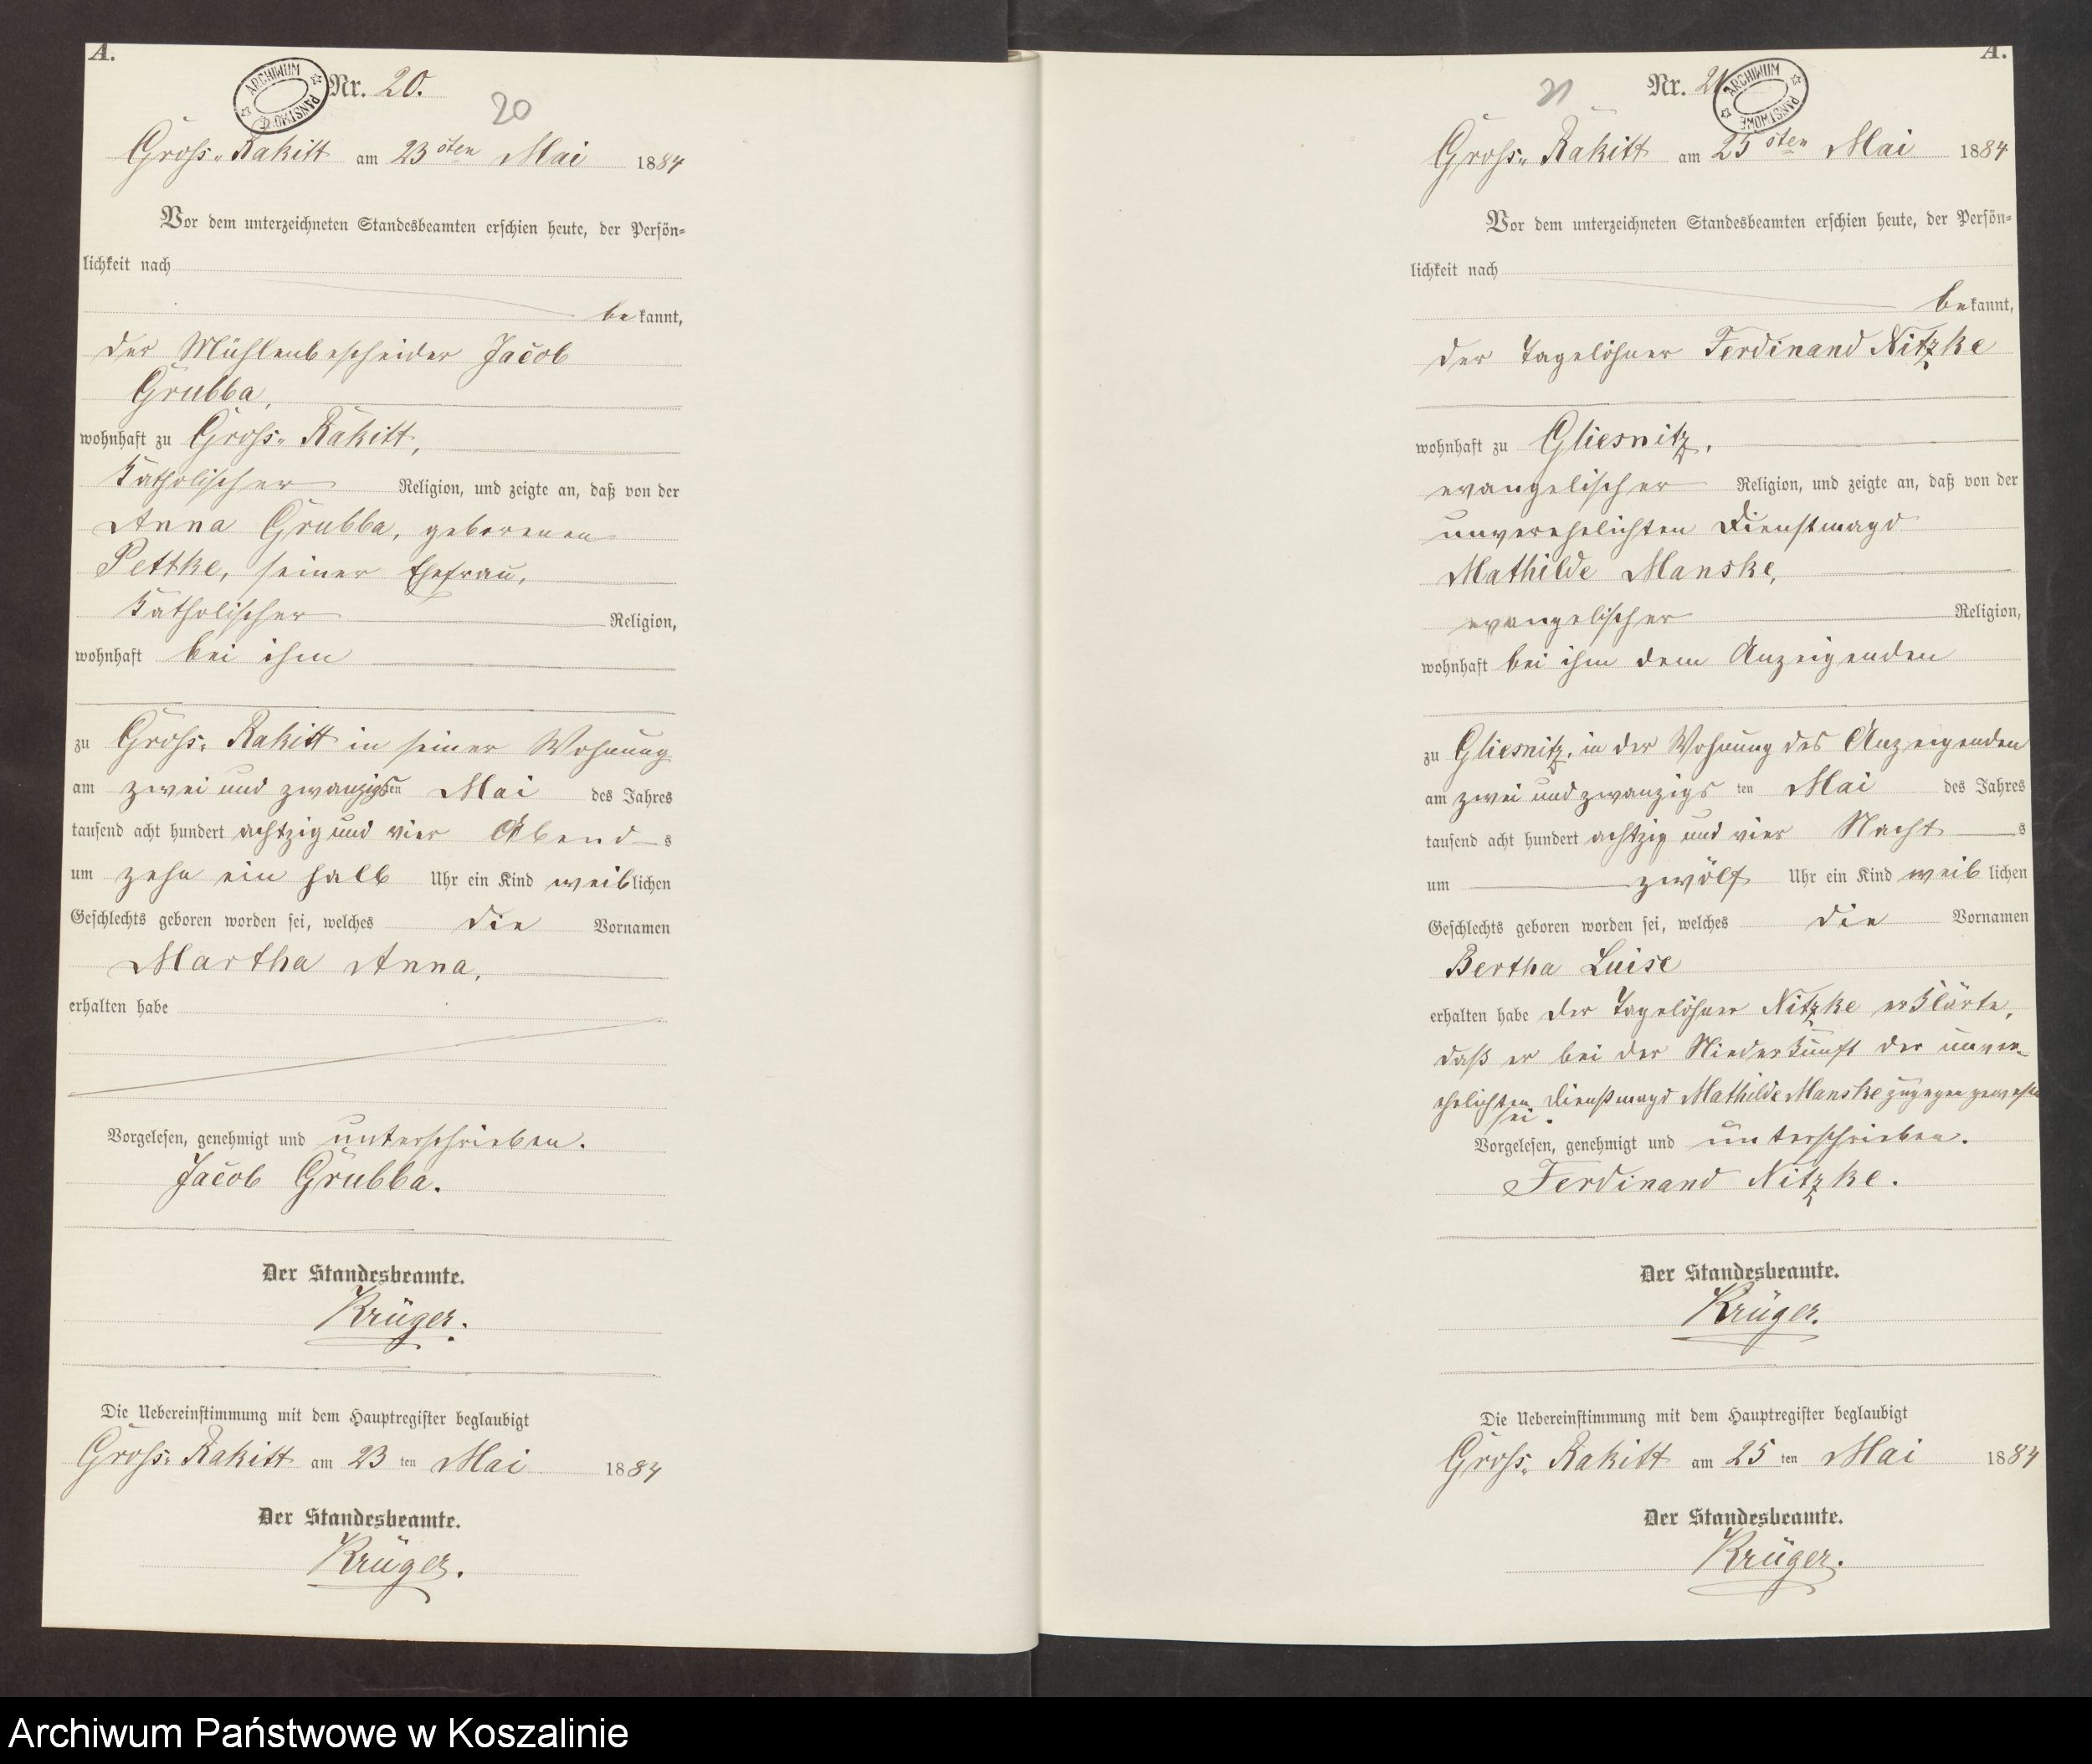 A.
ARCHIWUM PAŃSTWOWE
Nr. 20.
20
Gross-Rakitt am 23 sten Mai 1884
Vor dem unterzeichneten Standesbeamten erschien heute, der Persön=
lichkeit nach
bekannt,
der Mühlenbescheider Jacob
Grubba,
wohnhaft zu Gross-Rakitt,
katholischer Religion, und zeigte an, daß von der
Anna Grubba, geborenen
Pettke, seiner Ehefrau,
katholischer Religion,
wohnhaft bei ihm
zu Gross-Rakitt in seiner Wohnung
am zwei und zwanzigsten Mai des Jahres
tausend acht hundert achtzig und vier Abends
um zehn ein halb Uhr ein Kind weiblichen
Geschlechts geboren worden sei, welches die Vornamen
Martha Anna,
erhalten habe
Vorgelesen, genehmigt und unterschrieben.
Jacob Grubba.
Der Standesbeamte.
Krüger.
Die Uebereinstimmung mit dem Hauptregister beglaubigt
Gross-Rakitt am 23 ten Mai 1884
Der Standesbeamte.
Krüger.
A.
ARCHIWUM PAŃSTWOWE
21
Nr. 21
Gross-Rakitt am 25 sten Mai 1884
Vor dem unterzeichneten Standesbeamten erschien heute, der Persön=
lichkeit nach
bekannt,
der Tagelöhner Ferdinand Nitzke
wohnhaft zu Gliesnitz,
evangelischer Religion, und zeigte an, daß von der
unverehelichten Dienstmagd
Mathilde Manske,
evangelischer Religion,
wohnhaft bei ihm dem Anzeigenden
zu Gliesnitz, in der Wohnung des Anzeigenden
am zwei und zwanzigsten Mai des Jahres
tausend acht hundert achtzig und vier Nachts
um zwölf Uhr ein Kind weiblichen
Geschlechts geboren worden sei, welches die Vornamen
Bertha Luise
erhalten habe der Tagelöhner Nitzke erklärte,
daß er bei der Niederkunft der unver-
ehelichten Dienstmagd Mathilde Manske zugegen gewesen
sei.
Vorgelesen, genehmigt und unterschrieben.
Ferdinand Nitzke.
Der Standesbeamte.
Krüger.
Die Uebereinstimmung mit dem Hauptregister beglaubigt
Gross-Rakitt am 25 ten Mai 1884
Der Standesbeamte.
Krüger.
Archiwum Państwowe w Koszalinie